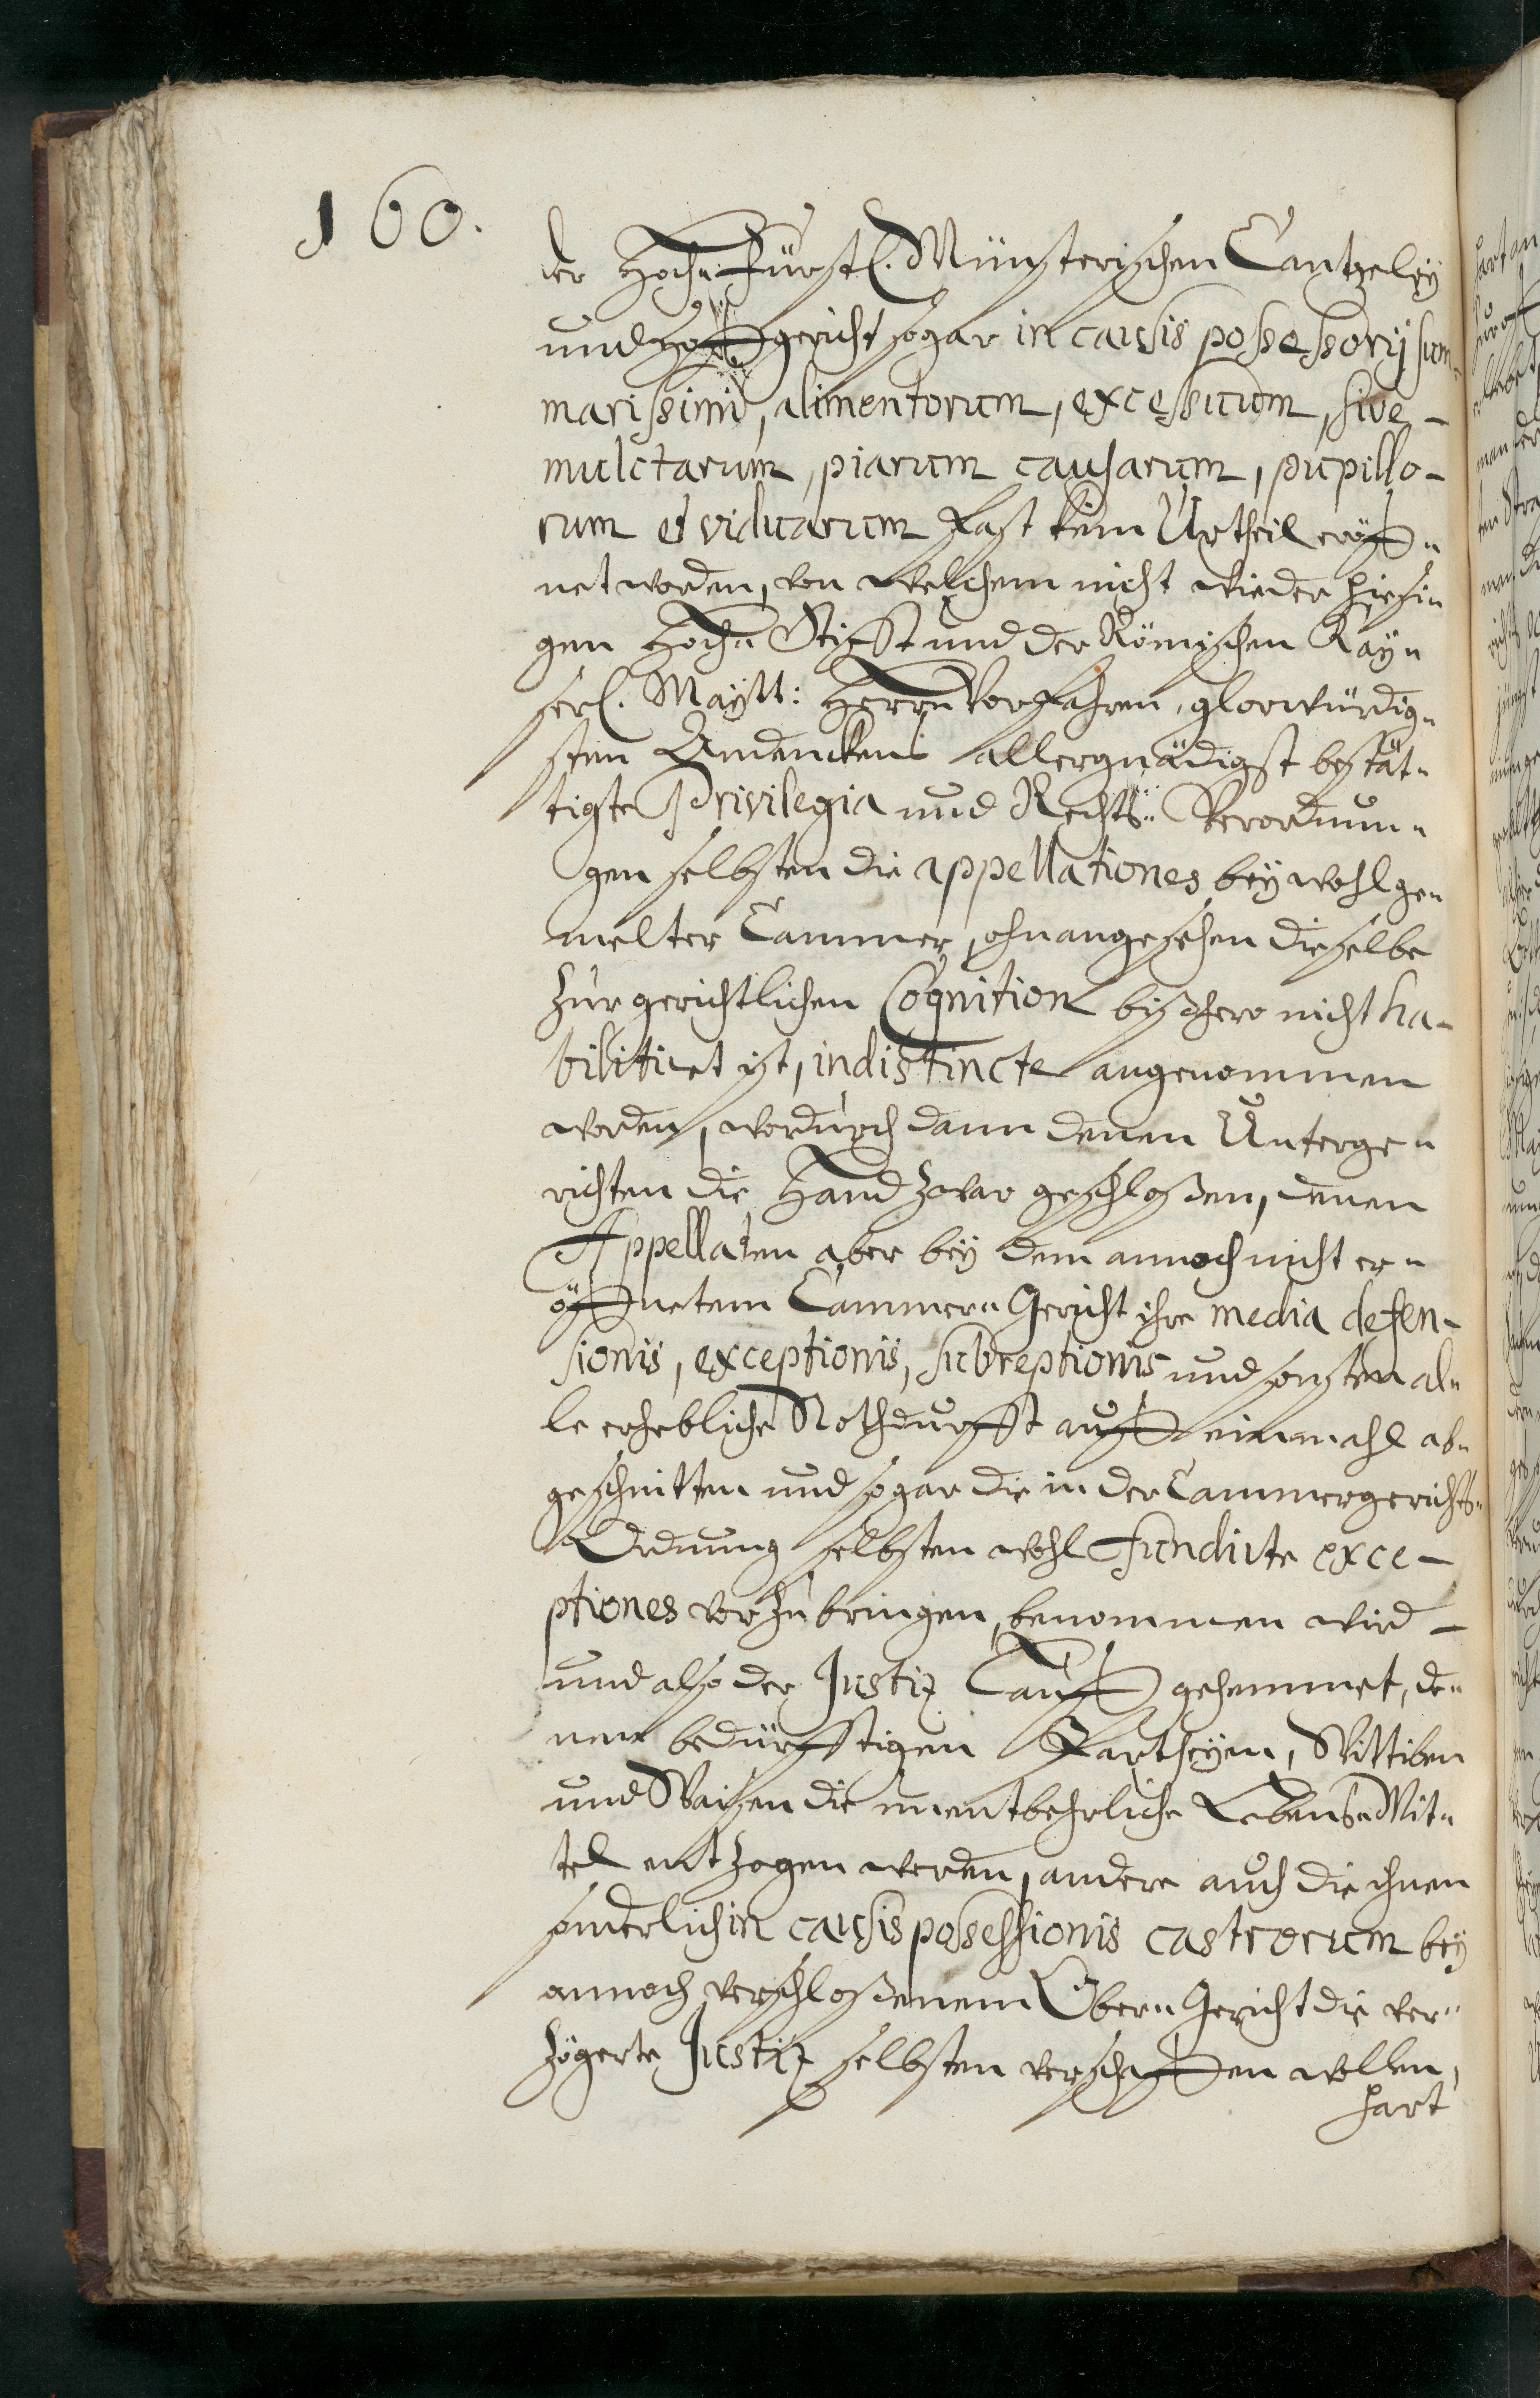 160.
der Hoch-Fürstl. Münsterischen Cantzeley
und Hoffgericht sogar in causis possessorij sum-
marissimi, alimentorum, excessuum, sive -
mulctarum, piarum causarum, pupillo-
rum et viduarum fast kein Urtheil eröff-
net worden, von welchem nicht wieder hiesi-
gen Hoch-Stifft und der Römischen Kay-
serl. Maytt: Herrn Vorfahren, glorwürdig-
sten Andenckens allergnädigst bestät-
tigte Privilegia und Rechts-Verordnun-
gen selbsten die appellationes bey wohlge-
melter Cammer, ohnangesehen dieselbe
zur gerichtlichen Cognition bißhero nicht ha-
bilitiret ist, indistincte angenommen
worden, wordurch dann denen Unterge-
richten die Hand zwar geschloßen, denen
Appellaten aber bey dem annoch nicht er-
öffnetem Cammer-Gericht ihre media defen-
sionis, exceptionis, subreptionis und sonsten al-
le erhebliche Nothdurfft auff einmahl ab-
geschnitten und sogar die in der Cammergerichts-
Ordnung selbsten wohl fundirte exce-
ptiones vorzubringen, benommen wird -
und also der Justiz Lauff gehemmet, de-
nen bedürfftigen Partheyen, Wittiben
und Waisen die unentbehrliche Lebens-Mit-
tel entzogen werden, andere auch die ihnen
sonderlich in causis possessionis castrorum bey
annoch verschloßenem Ober-Gericht die ver-
zögerte Justiz selbsten verschaffen wollen,
hart